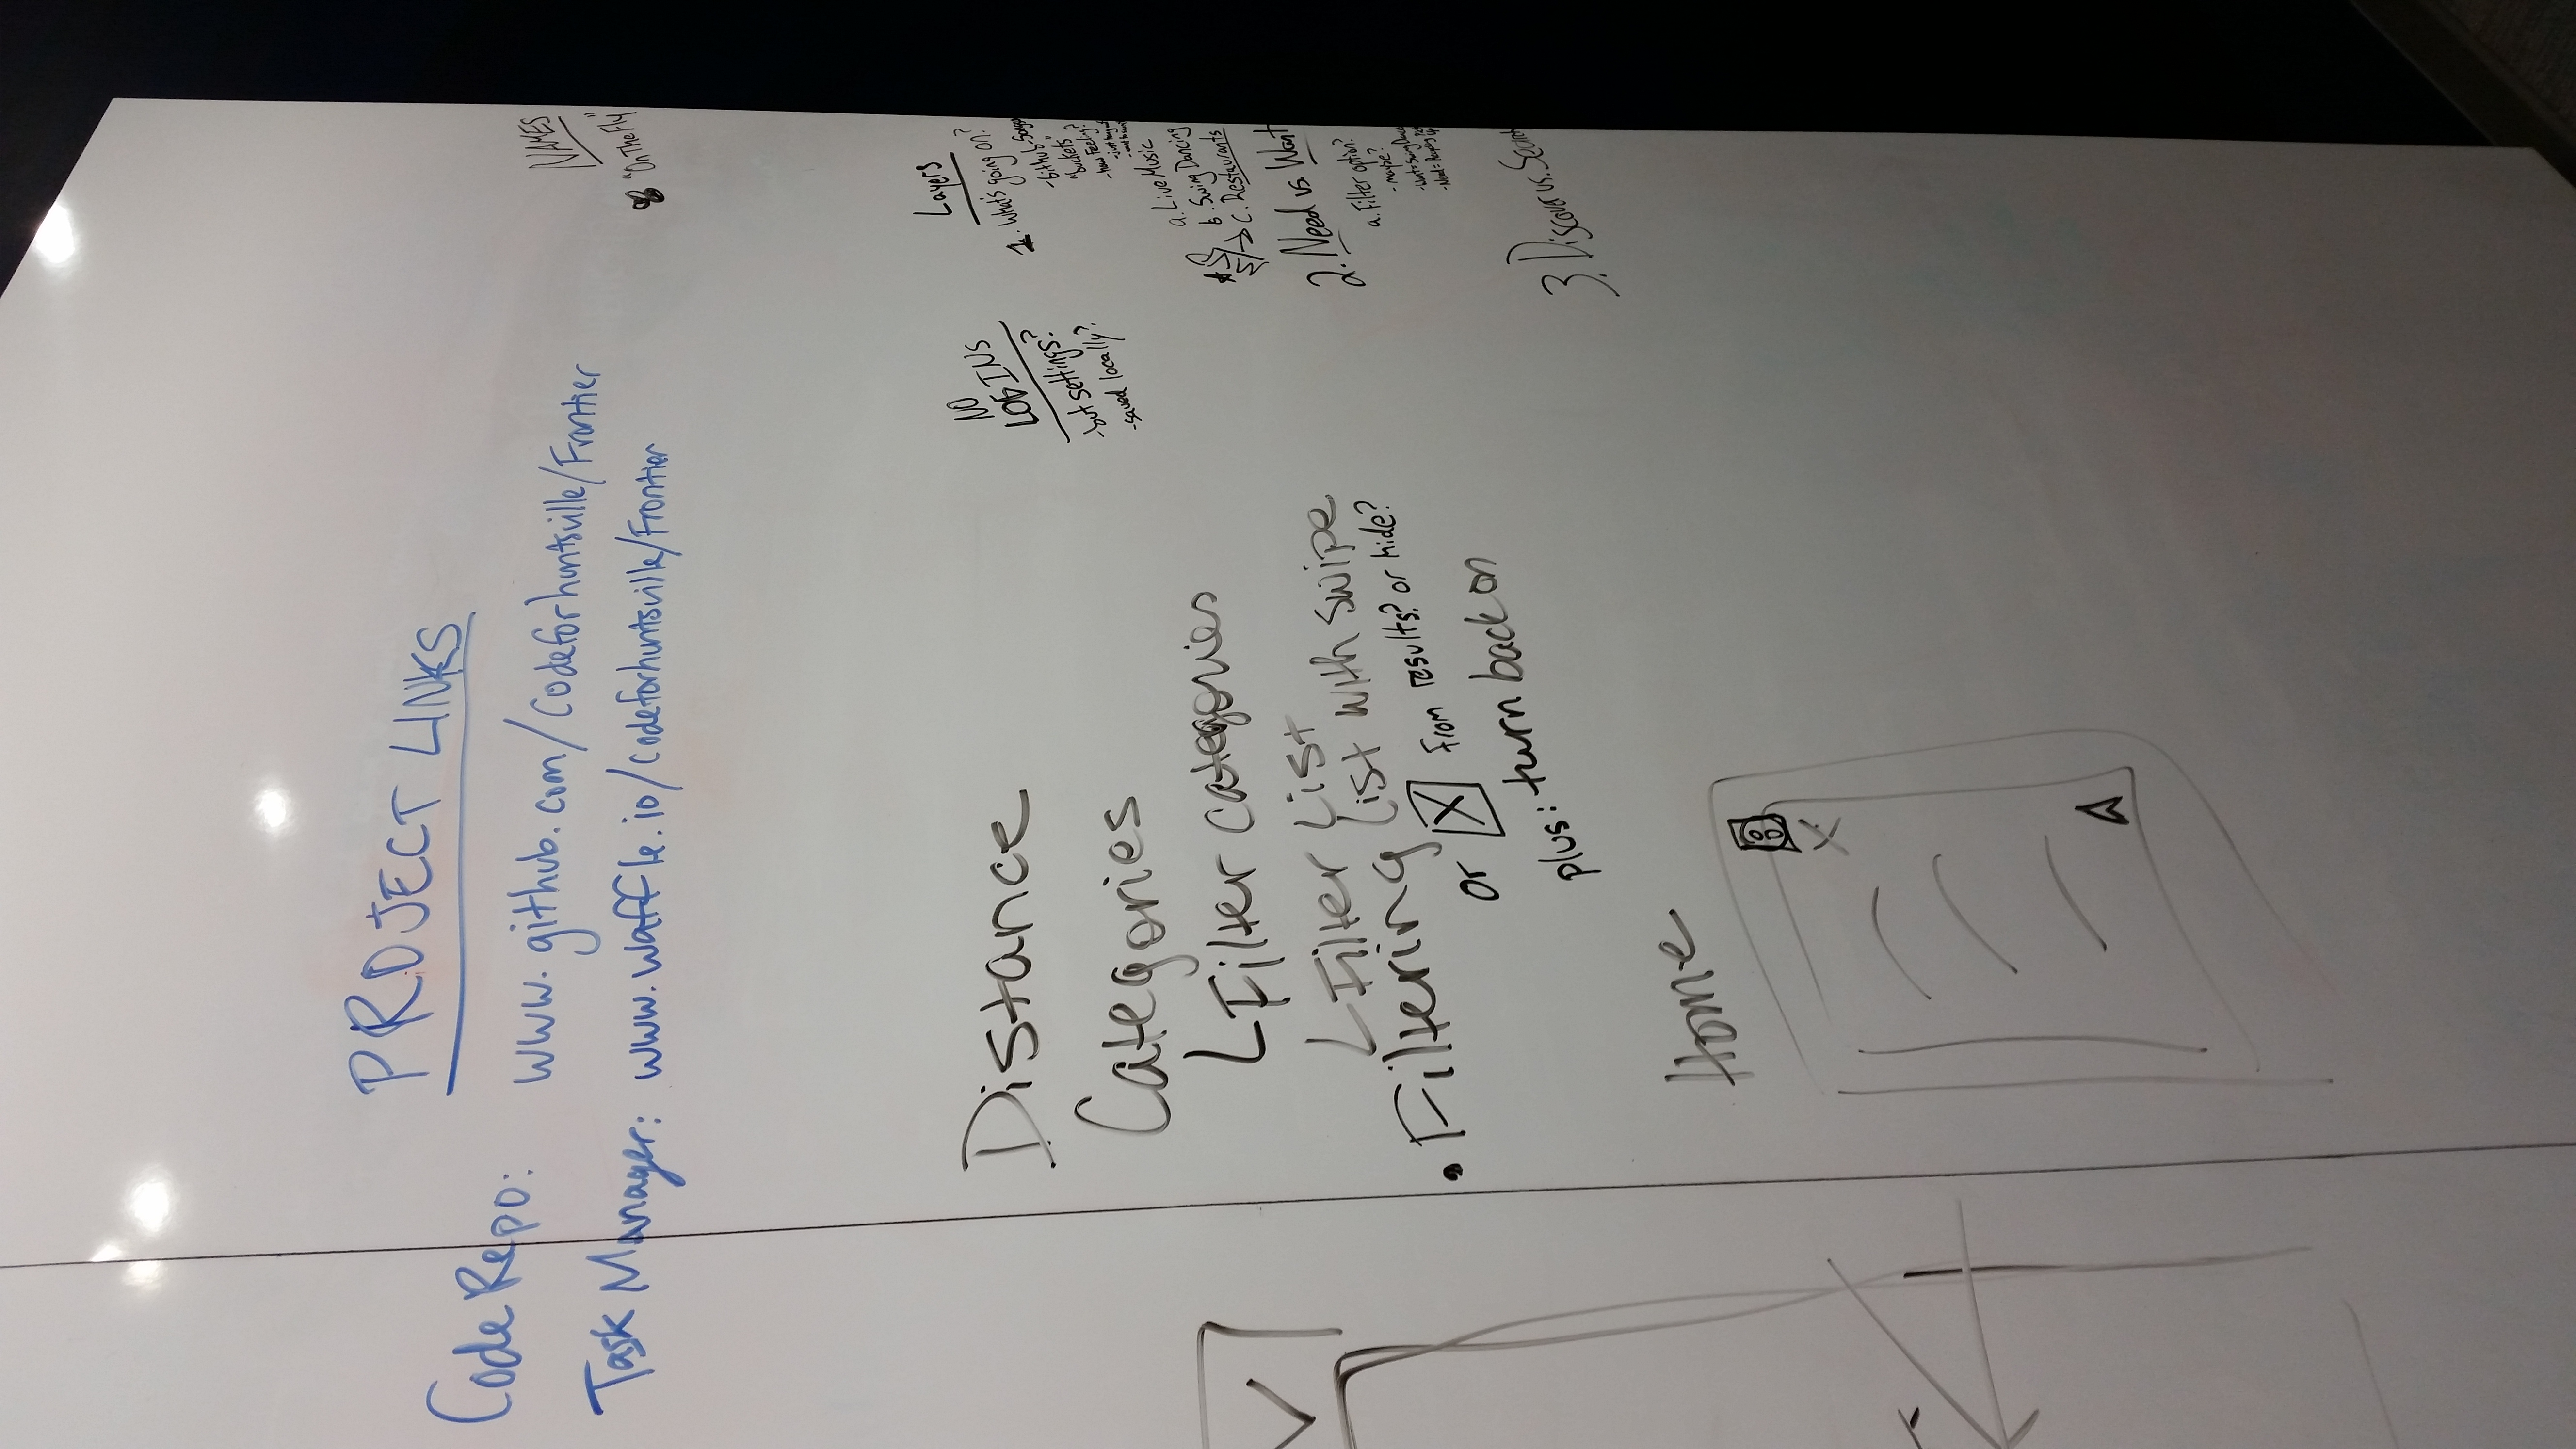 PROJECT LINKS
Code Repo: www.github.com/Codeforhuntsville/Frontier
Task Manager: www.waffle.io/codeforhuntsville/Frontier
NAMES
"OnTheFly"
Distance
Categories
Filter categories
Filter List
• Filtering list with swipe
or X from results? or hide?
plus: turn back on
Home
NO
LOGINS
-but settings?
-saved locally?
Layers
1. What's going on?
-Github-
"buckets"
-how Feeling?
-just hang out
-want to
a. Live Music
b. Swing Dancing
c. Restaurants
2. Need vs. Want
a. Filter option?
- maybe?
-Want=Swing Dance
-Need=Recycling Pick
up
3. Discover vs. Search